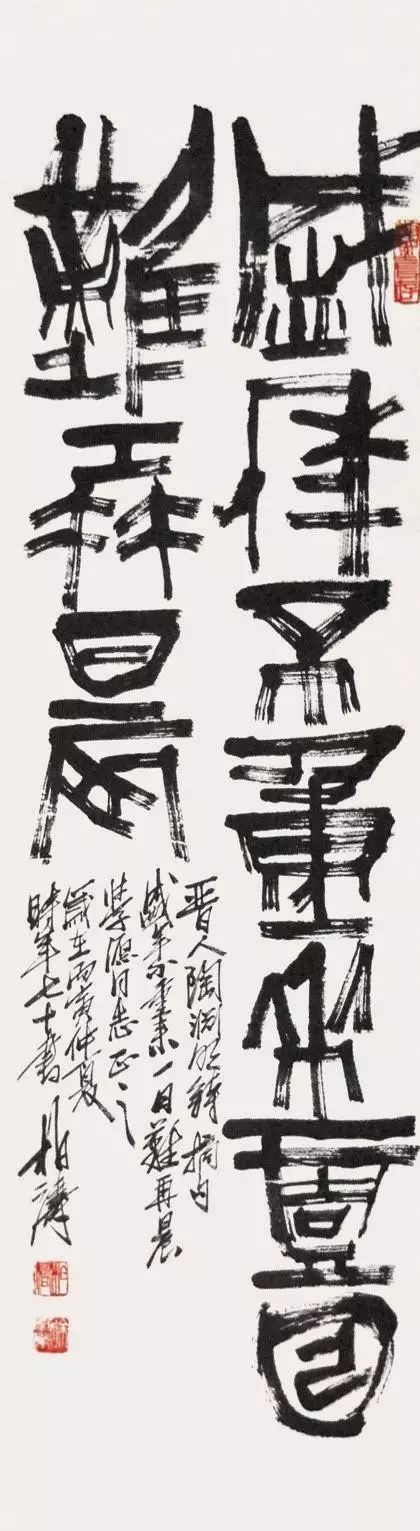 盛年不重來壹日
難再晨
晋人陶渊明诗摘句
盛年不重来一日難再晨
同志正之
歲在丙寅仲夏
時年七十書 柏濤